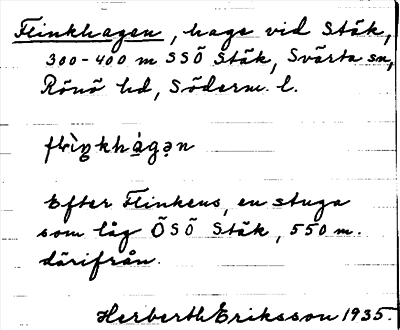 Flinkhagen, hage vid Stäk,
300-400 m SSÖ Stäk, Svärta sn,
Rönö hd, Söderm. l.
Efter Flinkens, en stuga
som låg ÖSÖ Stäk, 550 m.
därifrån.
Herberth Eriksson 1935.